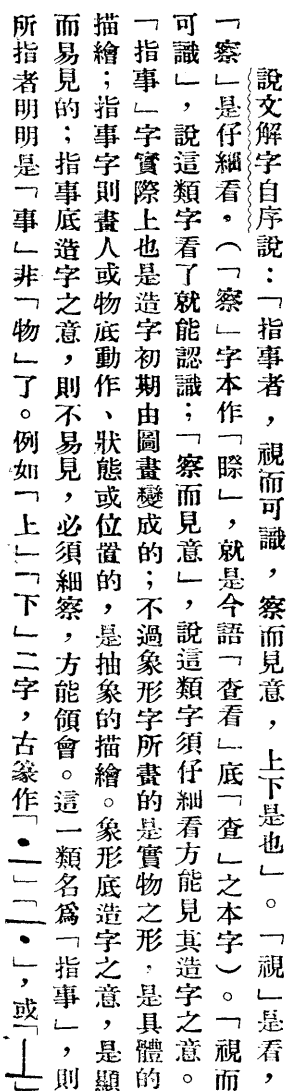 說文解字自序說：「指事者，視而可識，察而見意，上下是也」。「視」是看，
「察」是仔細看。（「察」字本作「瞭」，就是今語「查看」底「查」之本字）。「視而
可識」，說這類字看了就能認識；「察而見意」，說這類字須仔細看方能見其造字之意。
「指事」字實際上也是造字初期由圖畫變成的；不過象形字所畫的是實物之形，是具體的
描繪；指事字則畫人或物底動作、狀態或位置的，是抽象的描繪。象形底造字之意，是顯
而易見的；指事底造字之意，則不易見，必須細察，方能領會。這一類名爲「指事」，則
所指者明明是「事」非「物」了。例如「上」「下」二字，古篆作「